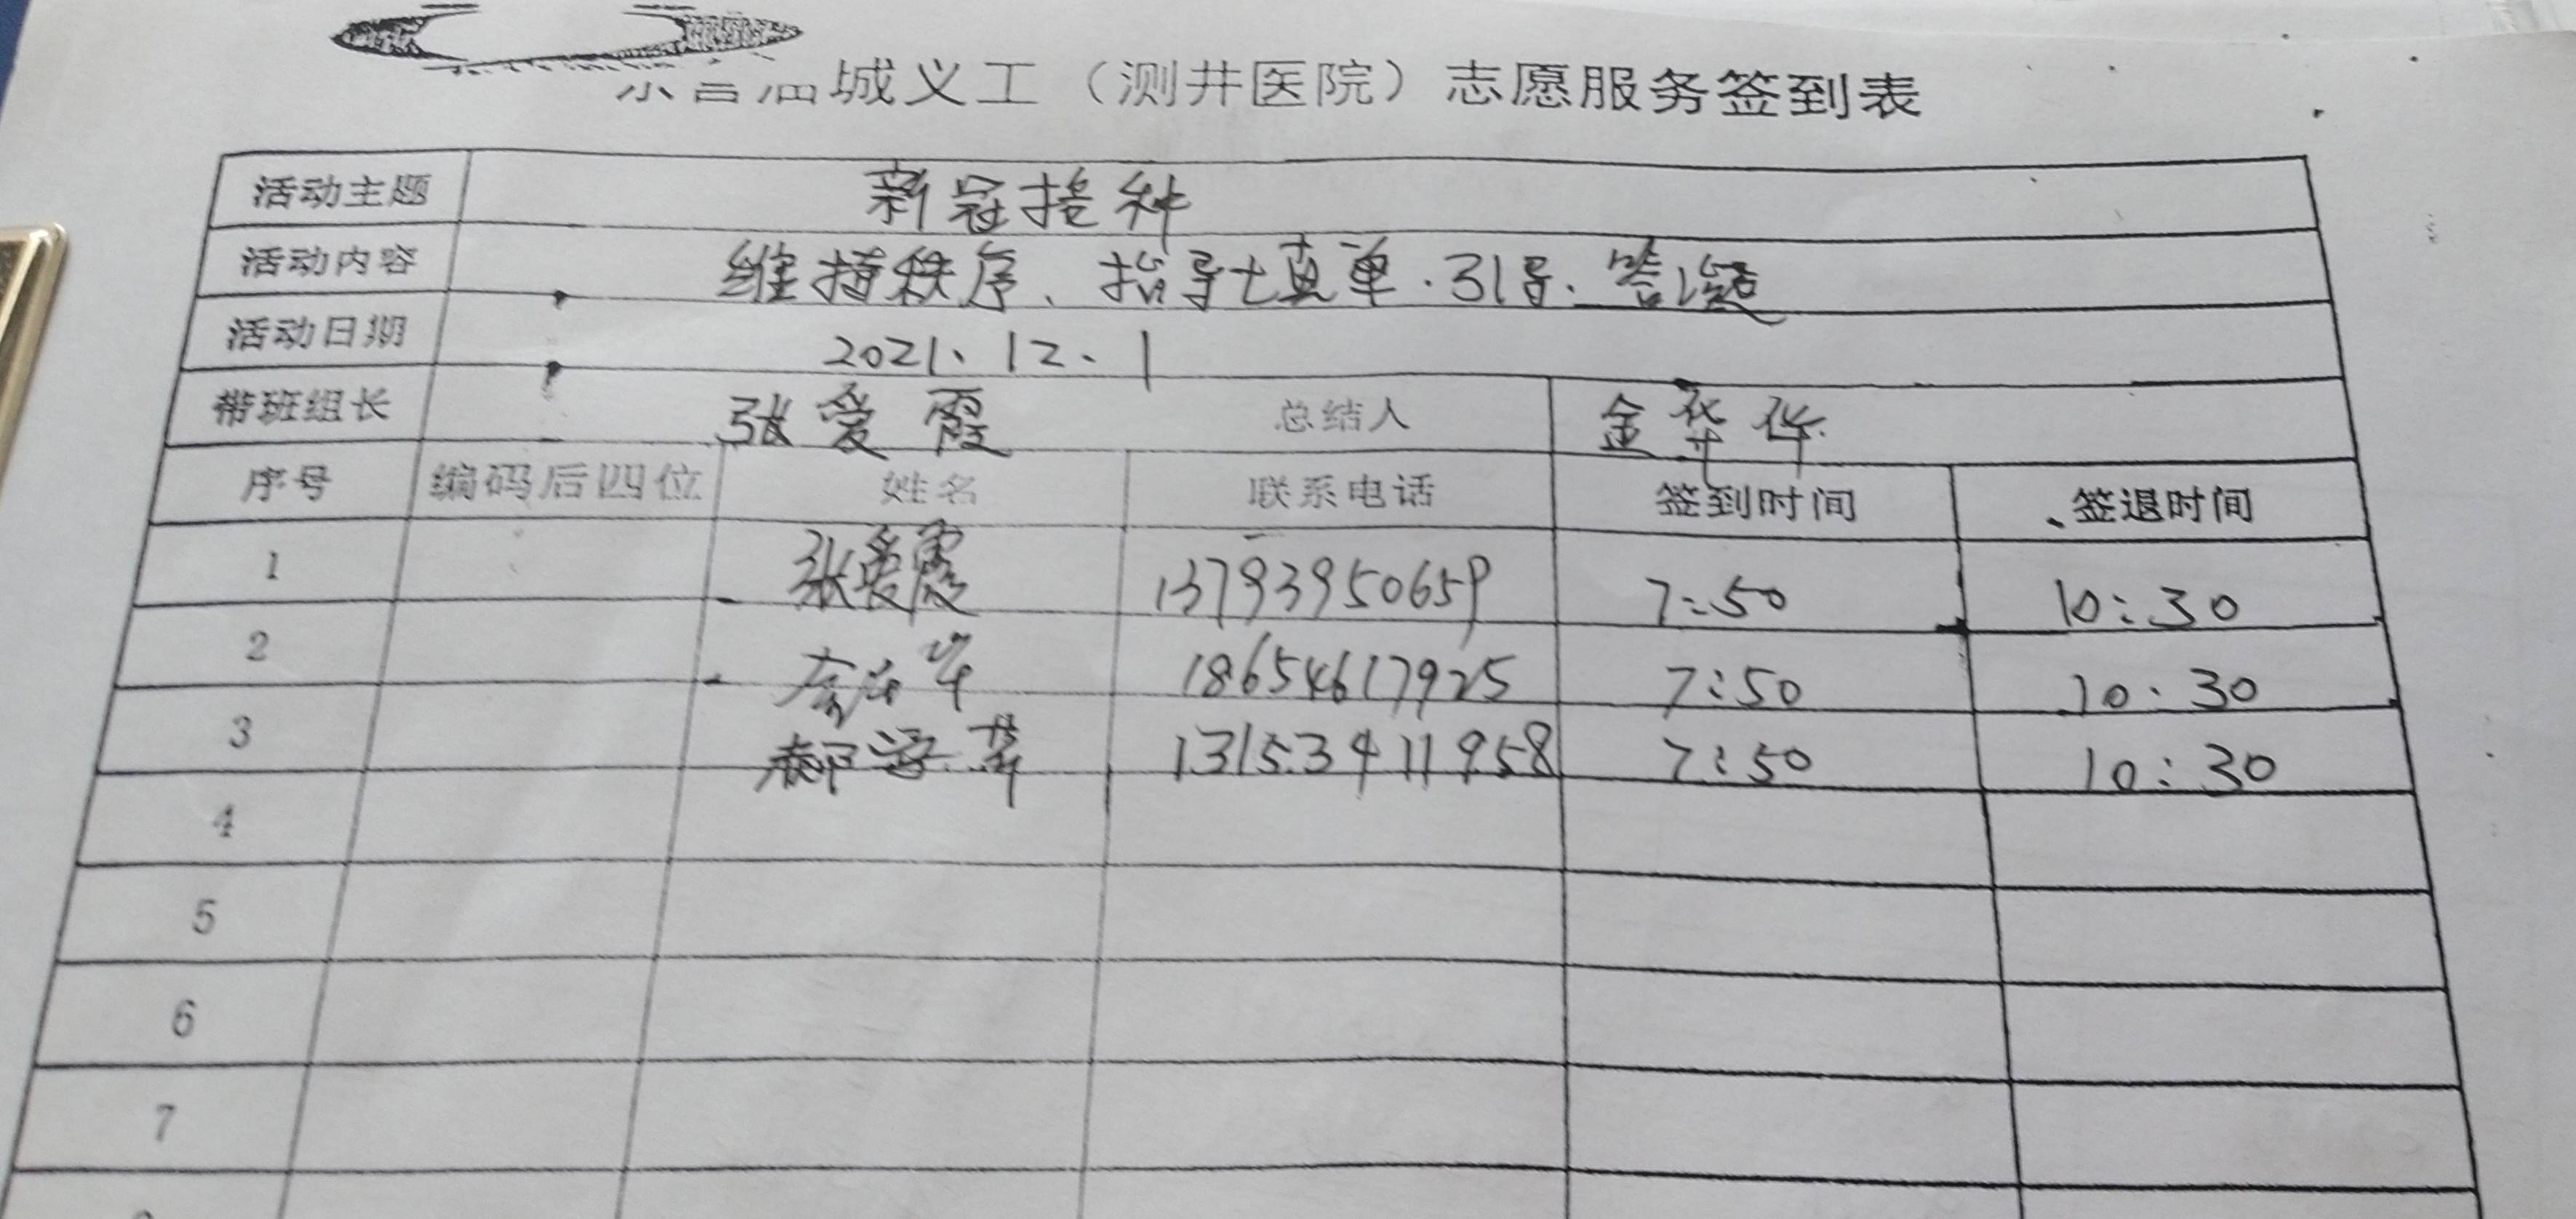 城义工（测井医院）志愿服务签到表
活动主题 新冠接种
活动内容 维持秩序、指导填单.引导.答疑
活动日期 2021.12.1
带班组长 张爱霞 总结人 金
序号 编码后四位 姓名 联系电话 签到时间 签退时间
1 张爱霞 13793950659 7:50 10:30
2 18654617925 7:50 10:30
3 13153411958 7:50 10:30
4
5
6
7